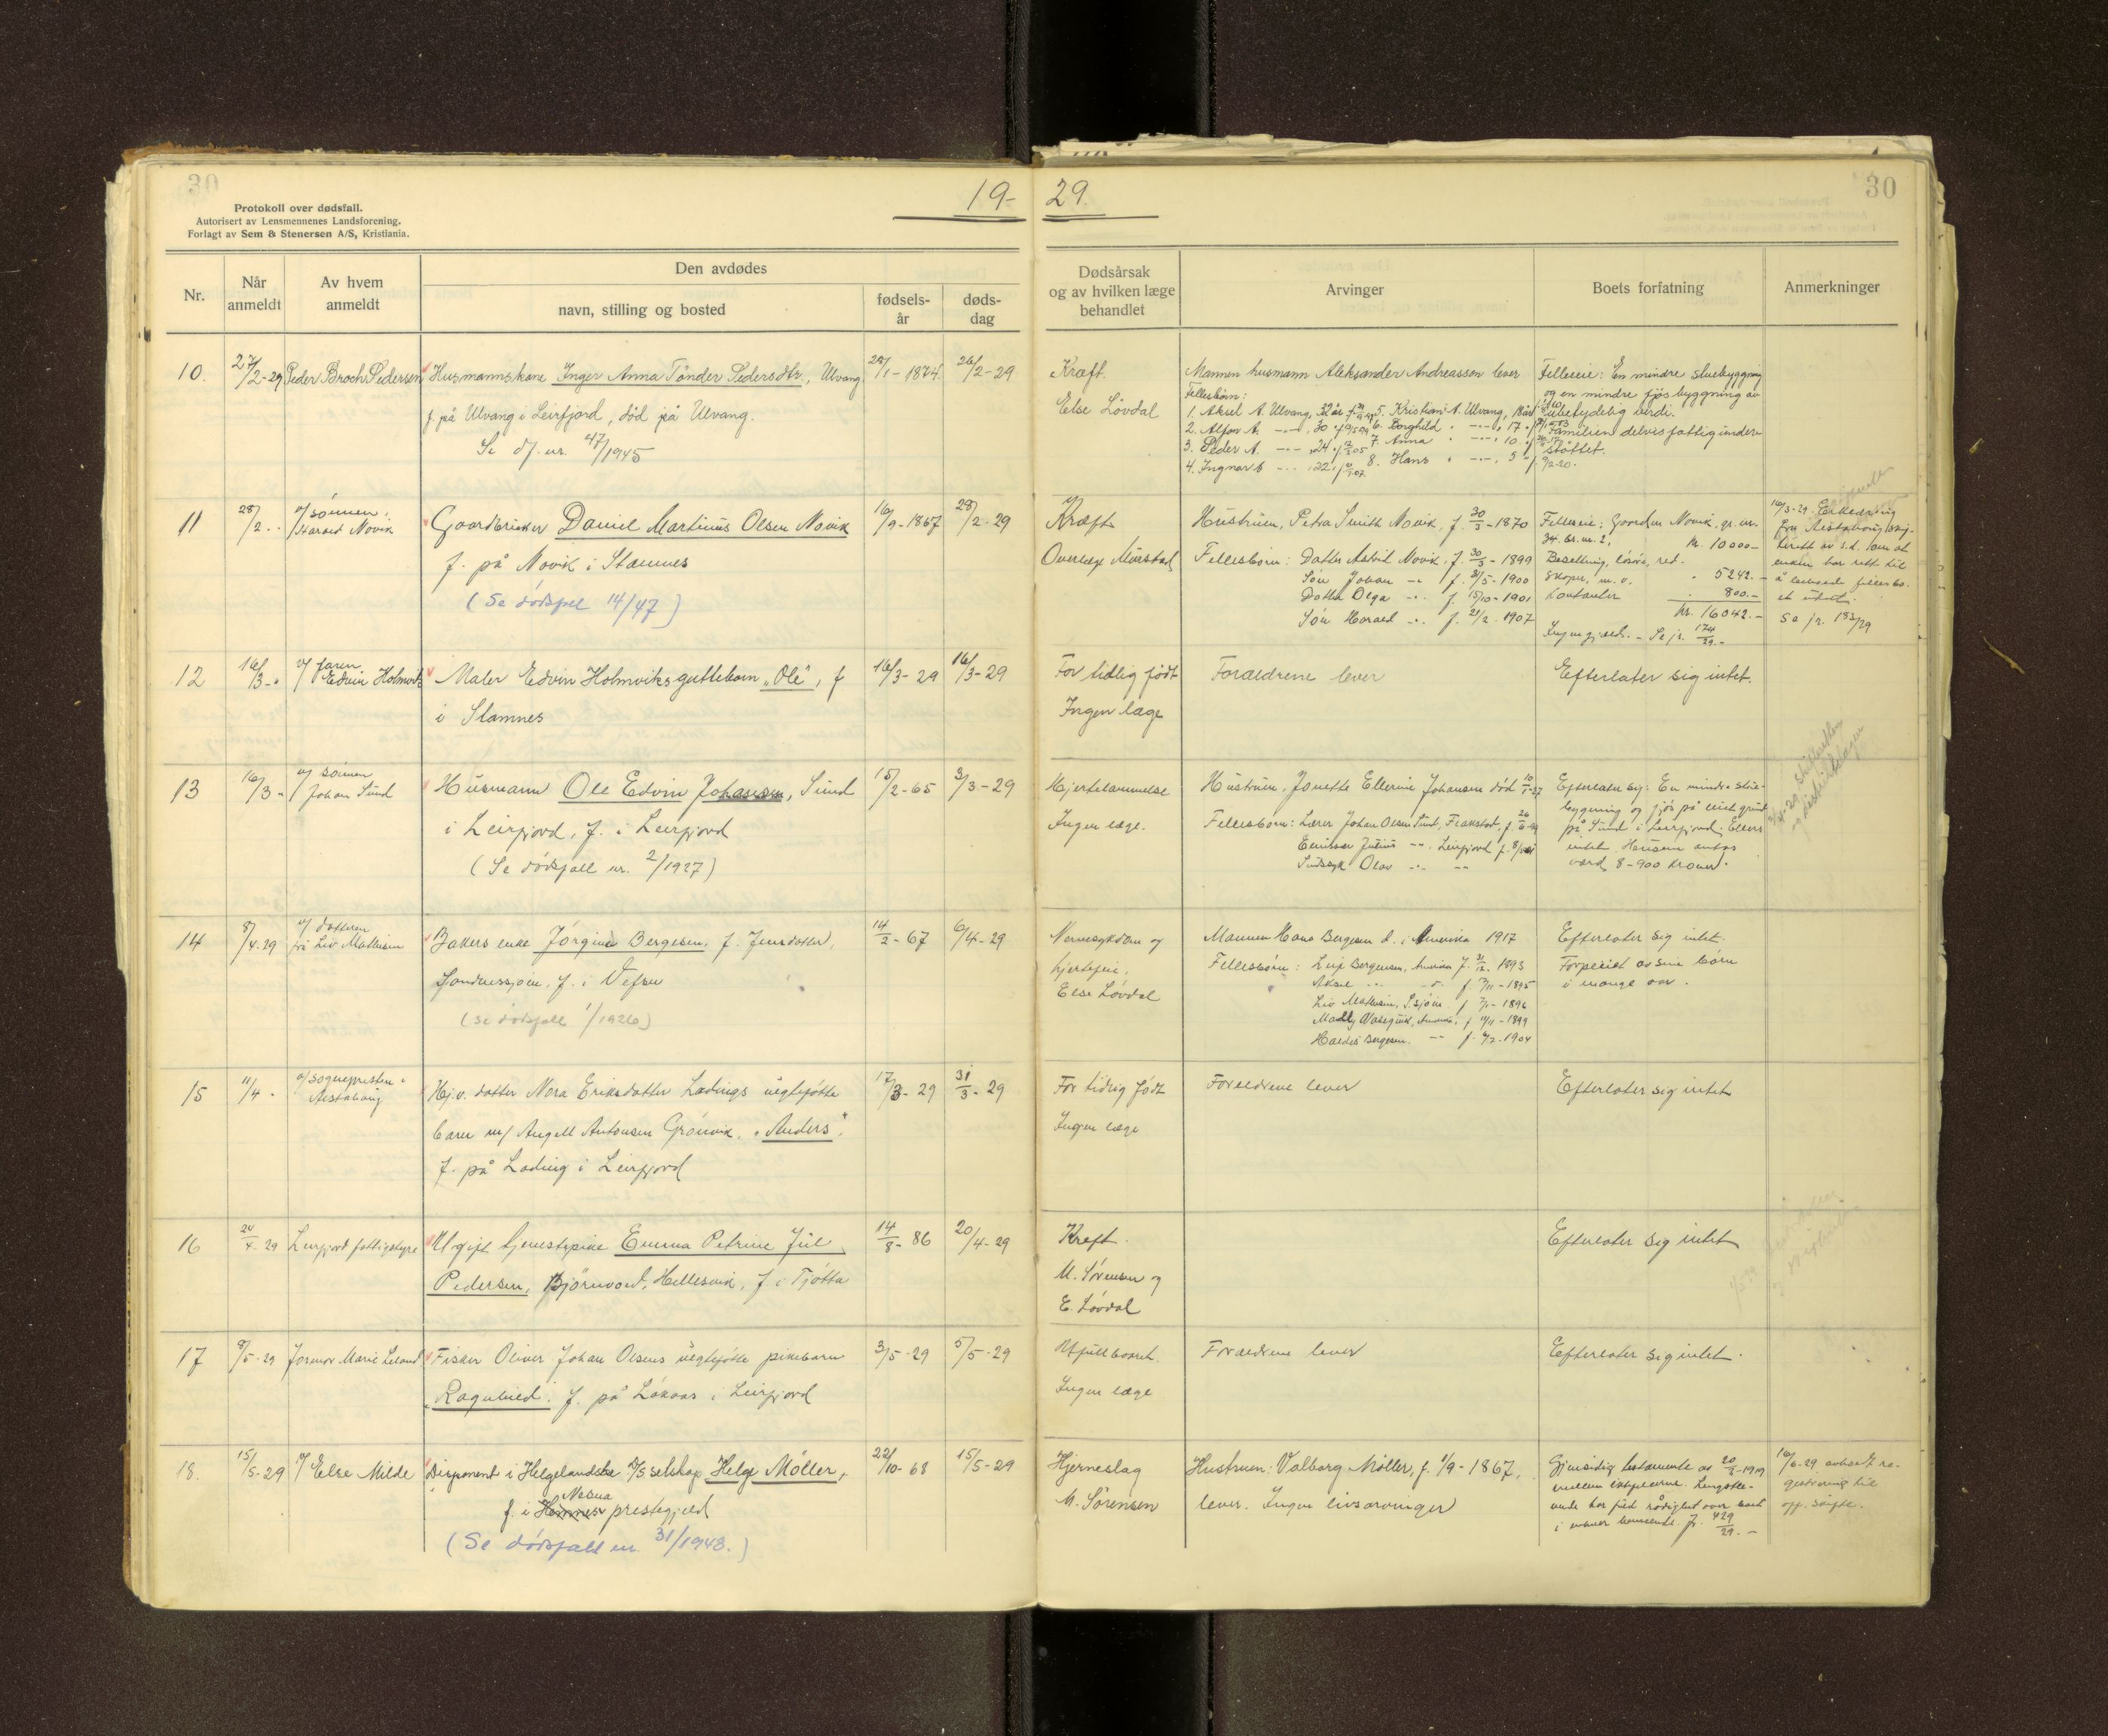 30
Protokoll over dødsfall.
Autorisert av Lensmennenes Landsforening.
Forlagt av Sem & Stenersen A/S, Kristiania.
19-29.
30
Nr.
Når anmeldt
Av hvem anmeldt
Den avdødes
navn, stilling og bosted
fødselsår
dødsdag
Dødsårsak og av hvilken læge behandlet
Arvinger
Boets forfatning
Anmerkninger
10. 27/2-29 Peder Broch Pedersen Husmannskone Inger Anna Tønder Pedersdtr., Ulvang 28/1-1874 26/2-29
f. på Ulvang i Leirfjord, død på Ulvang.
Se df. nr. 47/1945
Kræft
Else Lövdal
Mannen husmann Aleksander Andreassen lever
Fellesbörn:
1. Aksel A. Ulvang, 32 år 5. Kristian A. Ulvang, 18 år
2. Alfon A. 30 6. Borghild 17
3. Peder A. 24 7. Anna 10
4. Ingvar 22 8. Hans
Felleseie: En mindre stuebyggning
og en mindre fjös byggning av
ubetydelig verdi.
Familien delvis fattigunder-
støttet.
11 28/2 v/ sönnen Harald Novik Gaardbruker Daniel Martinus Olsen Novik 16/9-1867 28/2-29
f. på Novik i Stamnes
(Se dödsfall 14/47)
Kræft
Overlæge Mürstad
Hustruen, Petra Smith Novik, f. 30/3-1870
Fellesbörn: Datter Astrid Novik, f. 30/3-1899
Sön Johan f. 31/5-1900
Datter Olga f. 15/10-1901
Sön Harald f. 21/2-1907
Felleseie: Gaarden Novik, gr. nr.
34. br. nr. 2, kr. 10000-
Besetning, lösöre, red-
skaper, m. v. 5242.-
Kontanter 800.-
Kr. 16042.-
Se jr. 174/29.-
16/3-29. Erklæring
fra Alstahaug
enken har rett til
Se jr. 183/29
12 16/3 v/ faren Edvin Holmvik Maler Edvin Holmviks guttebarn "Ole", f 16/3-29 16/3-29
i Stamnes
For tidlig født
Ingen læge
Forældrene lever
Efterlater sig intet.
13 16/3 v/ sönnen Johan Sund Husmann Ole Edvin Johansen, Sund 15/2-65 3/3-29
i Leirfjord, f. i Leirfjord
(Se dödsfall nr. 2/1927)
Hjertelammelse
Ingen læge.
Hustruen, Jonette Ellerine Johansen död
Fellesbörn: Lærer Johan Olsen Sund, Flakstad,
Julius Leirfjord
Sindssyk Olav
Efterlater sig: En mindre stue-
bygning og fjös på leiet grund
på Sund i Leirfjord. Ellers
intet. Husene antas
værd 8-900 kroner.
14 8/4-29 v/ datteren fru Liv Mathisen Bakers enke Jörgine Bergesen, f. Jensdatter, 14/2-67 6/4-29
Sandnessjöen, f. i Vefsn
(Se dödsfall 1/1926)
Nervesykdom og
hjertefeil.
Else Lövdal
Mannen Hans Bergesen d. i Amerika 1917
Fellesbörn: Leif Bergesen, Amerika f. 31/12-1893
Aksel f. 1895
Liv Mathisen, S.sjöen f. 1896
Amerika, f. 1899
Haldis Bergesen. f. 1904
Efterlater sig intet.
Forpleiet av sine börn
i mange aar.
15 11/4 v/ sognepresten i Alstahaug Hj.v. datter Nora Eriksdatter Ladings uegtefödte 17/3-29 31/3-29
barn m/ Angell Antonsen Grönvik, "Anders",
f. på Lading i Leirfjord
For tidlig født
Ingen læge
Forældrene lever
Efterlater sig intet
16 24/4-29 Leirfjord fattigstyre Ugift tjenestepike Emma Petrine Jul 14/8-86 20/4-29
Pedersen, Björnvoll, Hellesvik, f. i Tjötta
Kreft
M. Sörensen og
E. Lövdal
Efterlater sig intet
17 8/5-29 Jormor Marie Leland Fisker Oliver Johan Olsens uegtefödte pikebarn 3/5-29 5/5-29
"Ragnhild". f. på Lökaas i Leirfjord
Ufullbaaret.
Ingen læge
Forældrene lever
Efterlater sig intet.
18. 15/5-29 v/ Else Milde Disponent i Helgelandske A/S selskap Helge Möller, 22/10-68 15/5-29
Nesna
f. i Hemnes prestegjeld
(Se dödsfall nr. 31/1948.)
Hjerneslag
M. Sörensen
Hustruen: Valborg Möller, f. 1/9-1867,
lever. Ingen livsarvinger
Gjensidig testamente av 20/2-1919
mellem ektefællerne. Lengstle-
vende har fuld rådighet over boet
jr. 429/29.-
16/6-29 avhent re-
gistrering til
off. skifte.